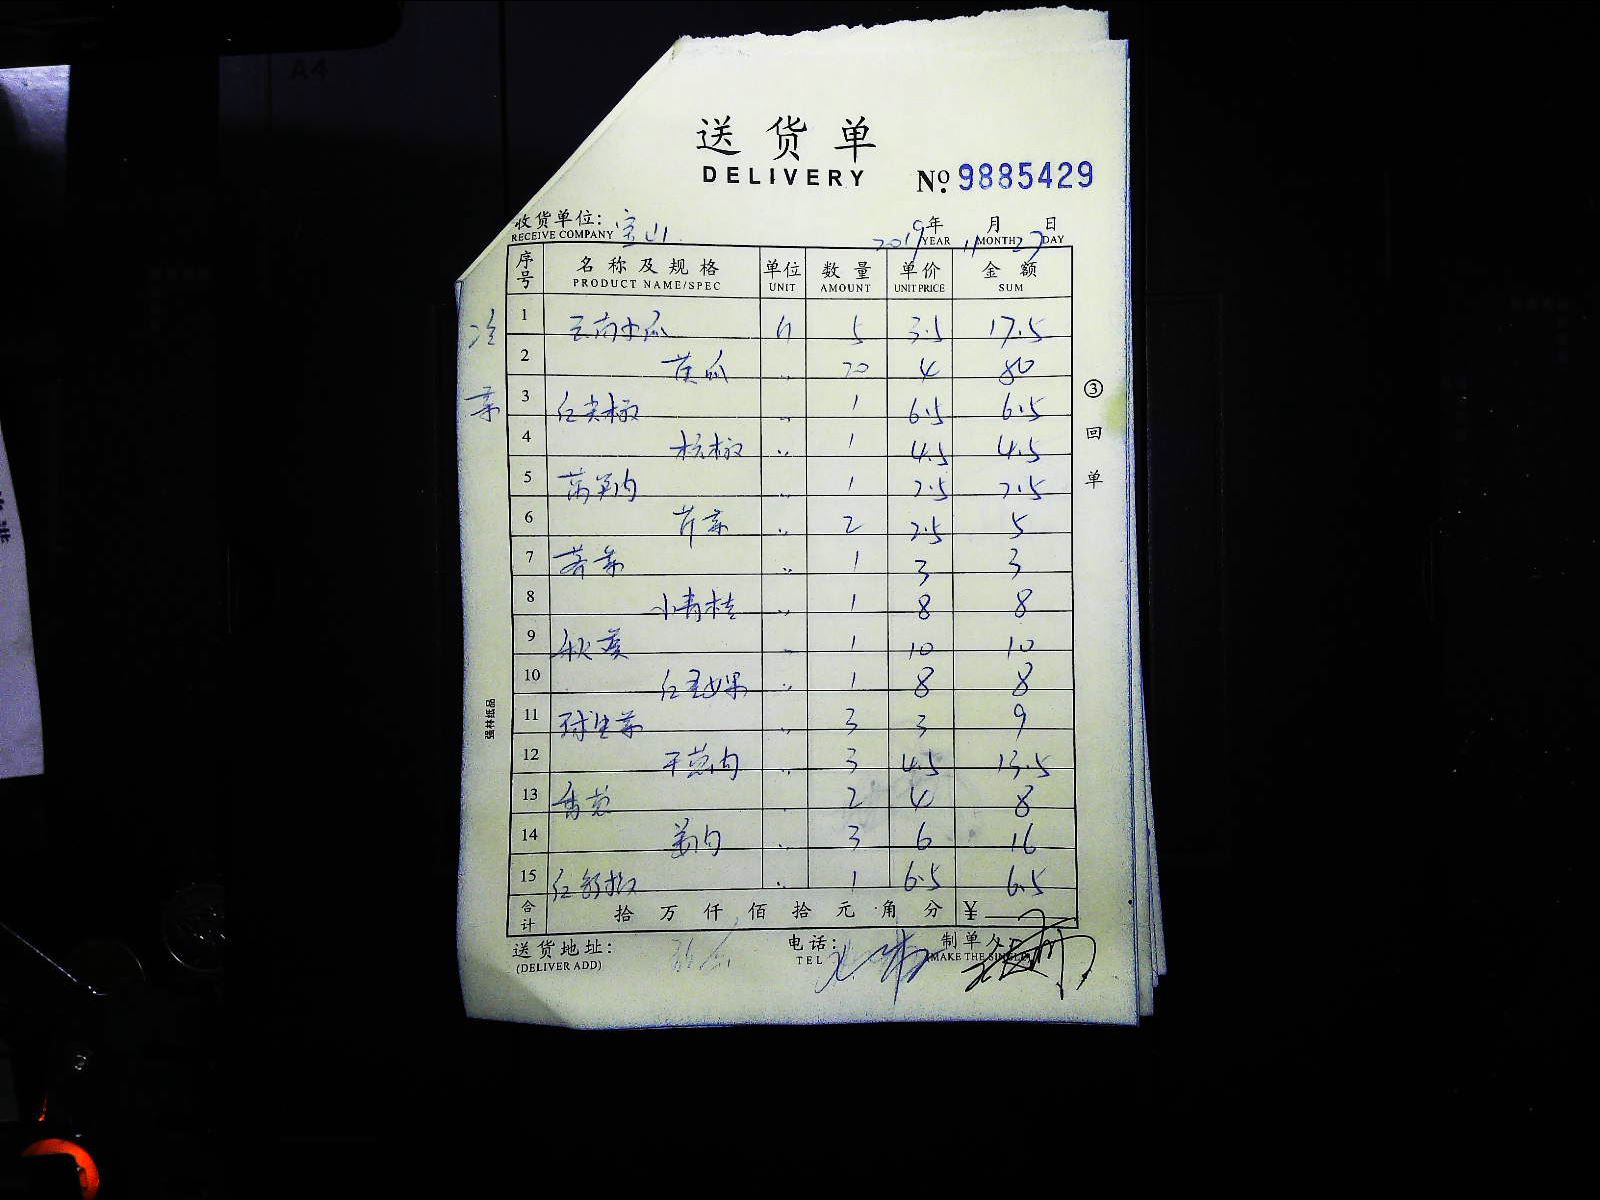 送货单
DELIVERY
No. 9885429
收货单位: 宝山 2019年 11月 27日
RECEIVE COMPANY YEAR MONTH DAY
序号 名称及规格 单位 数量 单价 金额
PRODUCT NAME/SPEC UNIT AMOUNT UNIT PRICE SUM
1 木瓜 5 3.5 17.5
2 黄瓜 〃 20 4 80
3 红尖椒 〃 1 6.5 6.5
4 杭椒 〃 1 4.5 4.5
5 〃 1 2.5 2.5
6 芹菜 〃 2 2.5 5
7 〃 1 3 3
8 小青桔 〃 1 8 8
9 秋葵 〃 1 10 10
10 红圣女果 〃 1 8 8
11 球生菜 〃 3 3 9
12 干葱肉 〃 3 4.5 13.5
13 香葱 2 4 8
14 姜肉 〃 3 6 16
15 〃 1 6.5 6.5
合计 拾 万 仟 佰 拾 元 角 分 ¥
送货地址: 电话: 制单人
(DELIVER ADD) TEL (MAKE THE SINGLE)
冷菜
③回单
强林纸品
A4